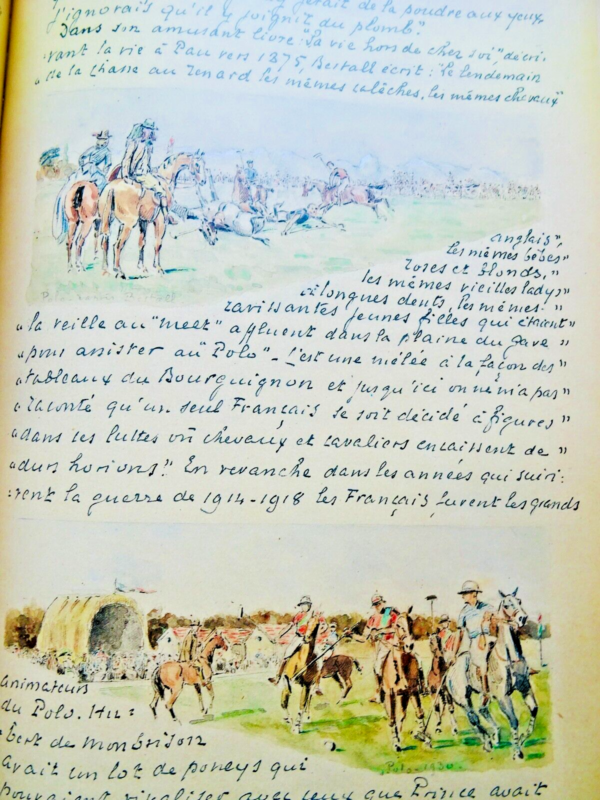 faisait de la poudre aux yeux
j'ignorais qu'il y joignit du plomb".
Dans son amusant livre "la vie hors de chez soi", décri-
vant la vie à Pau vers 1875, Bertall écrit : "le lendemain
"de la chasse au renard les mêmes calèches, les mêmes chevaux"
anglais",
les mêmes bébés"
roses et blonds,"
les mêmes vieilles ladys"
à longues dents, les mêmes "
ravissantes jeunes filles qui étaient"
"la veille au "meet" affluent dans la plaine du gave "
"pour assister au "Polo" - C'est une mêlée à la façon des"
"tableaux du Bourguignon et jusqu'ici on ne m'a pas"
"raconté qu'un seul Français se soit décidé à figurer"
"dans ces luttes où chevaux et cavaliers encaissent de "
"durs horions." En revanche dans les années qui suivi:
:rent la guerre de 1914-1918 les Français furent les grands
animateurs
du Polo. Hu:
:bert de Monbrison
avait un lot de poneys qui
Polo - 1930 -
pouvaient rivaliser avec ceux que Prince avait